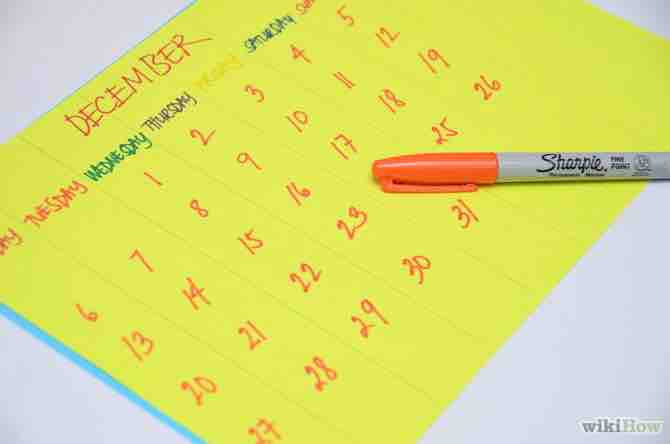 DECEMBER
DAY TUESDAY WEDNESDAY THURSDAY FRIDAY SATURDAY SUN
1 2 3 4 5
6 7 8 9 10 11 12
13 14 15 16 17 18 19
20 21 22 23 25 26
27 28 29 30 31
Sharpie. FINE POINT
Permanent Marker
wikiHow